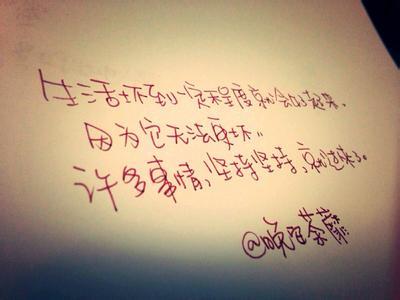 生活坏到一定程度就会好起来，
因为它无法更坏。
许多事情，坚持坚持，就过来了。
@晚